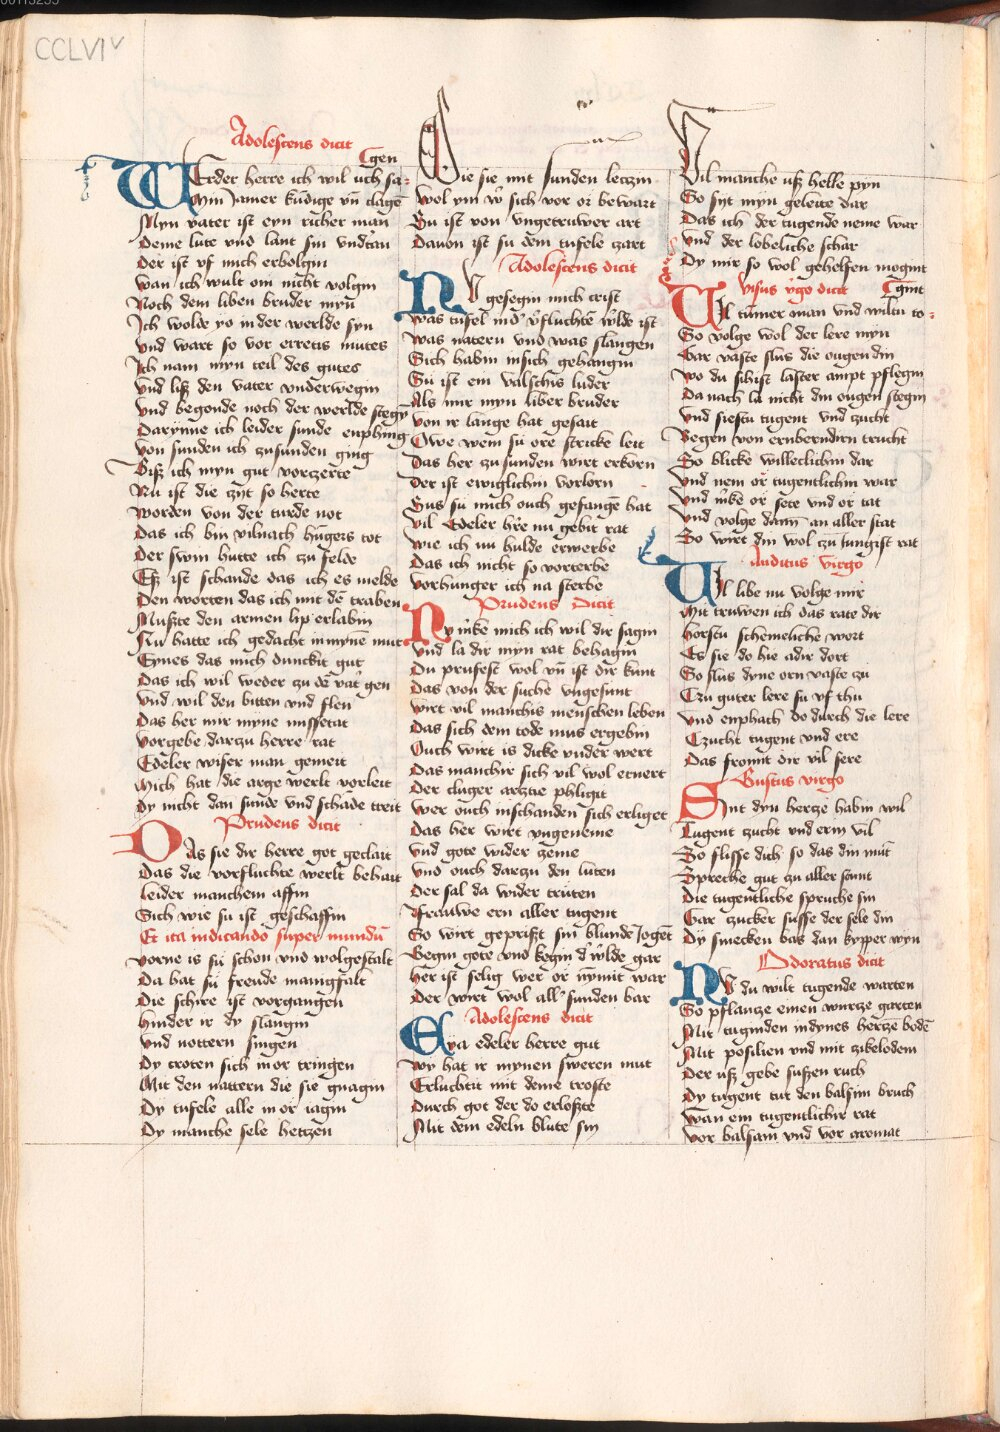 CCLVI v
Adolescens dicit
Werder herre ich wil uch sa-
gen
Myn Jamer kundige vn̄ clage
Myn vater ist eyn richer man
Deme lute vnd lant sin vndtan
Der ist vf mich erbolgin
wan ich wult om nicht volgin
Noch dem liben bruder myn
Ich wolde yo in der werlde syn
Vnd wart so vor erretis mutes
Ich nam myn teil des gutes
Vnd liß den vater vnderwegin
Vnd begonde noch der werlde stegȳ
Darynne ich leider sunde enphing
Von sunden ich zu sunden ging
Biß ich myn gut vorzerte
Nu ist die zyt so herte
worden von der turde not
Das ich bin vilnach hūgers tot
Der swin hutte ich zu felde
Eß ist schande das ich es melde
Den worten das ich mit dē traben
Mußte den armen lip erlabin
Nu hatte ich gedacht in mynē mut
Eynes das mich dunckit gut
Das ich wil weder zu dē vat' gen
Vnd wil den bitten vnd flen
Das her mir myne missetat
Vorgebe darzu herre rat
Edeler wiser man gemeit
Mich hat die arge werlt vorleit
Dy nicht dan sunde vnd schade treit
Prudens dicit
Das sie dir herre got geclait
Das die vorfluchte werlt behait
Leider manchem affin
Sich wie su ist geschaffin
Et ita indicando super mundū
Vorne is su schon vnd wolgestalt
Da hat su freude manigfalt
Die schire ist vorgangen
Hinder ir dy slangin
Vnd nottern singen
Dy croten sich in or tringen
Mit den nattern die sie gnagin
Dy tufele alle in or iagin
Dy manche sele hetczen
Die sie mit sunden leczin
Wol ym w' sich vor or bewart
Su ist von vngetruwer art
Dauon ist su dem tufele zart
Adolescens dicit
Nu gesegin mich crist
Was tufel in d' v'fluchtē w'lde ist
Was natern vnd was slangen
Sich habin in sich gehangin
Su ist ein valschis luder
Als mir myn liber bruder
Von ir lange hat gesait
Owe wem su ore stricke leit
Das her zu sunden wirt erkorn
Der ist ewiglichin vorlorn
Sus su mich ouch gefangē hat
Vil Edeler h're nu gebit rat
Wie ich nu hulde erwerbe
Das ich nicht so vorterbe
Vorhunger ich na sterbe
Prudens Dicit
Ny m'ke mich ich wil dir sagin
Vnd la dir myn rat behagin
Du prufest wol vn̄ ist dir kunt
Das von der suche vngesunt
Wirt vil manchis menschen leben
Das sich dem tode mus ergebin
Ouch wirt is dicke vnder wert
Das manchir sich vil wol ernert
Der cluger arztie phligit
Wer ouch in schanden sich erliget
Das her wirt vngeneme
Vnd gote wider zeme
Vnd ouch darzu den luten
Der sal da wider truten
Frauwe ern aller tugent
So wirt geprißt sin blunde Jogēt
Kegin gote vnd kegin d' w'lde gar
Her ist selig wer or nymit war
Der wirt wol all' sunden bar
Adolescens dicit
Eya edeler herre gut
Wy hat ir mynen sweren mut
Erluchtit mit deme troste
Durch got der do erloßte
Mit dem edeln blute sin
Vil manche uß helle pyn
So syt myn geleite dar
Das ich der tugende neme war
Vnd der lobeliche schar
Dy mir so wol gehelfen mogint
Visus v'go dicit
Vil tum̄er man vnd wiltu to-
gint
So volge wol der lere myn
Gar vaste slus die ougen din
Wo du sihist laster ampt pflegin
Da nach la nicht din ougen stegin
Vnd siestu tugent vnd zucht
Kegen von ernberndirn trucht
So blicke willeclichin dar
Vnd nem or tugentlichin war
Vnd m'ke or sete vnd or tat
Vnd volge dann an aller stat
So wirt din wol zu iungist rat
Auditus virgo
Vil libe nu volge mir
Mit truwen ich das rate dir
Horstu schemeliche wort
Es sie do hie adir dort
So slus dyne orn vaste zu
Czu guter lere su vf thu
Vnd enphach do durch die lere
Czucht tugent vnd ere
Das fromit dir vil sere
Gustus virgo
Sint dyn hercze habin wil
Tugent zucht vnd erin vil
So flisse dich so das din mūt
Spreche gut zu aller stunt
Die tugentliche spruche sin
Gar zucker susse der sele din
Dy smecken bas dan kypper wyn
Odoratus dicit
Nu du wilt tugende warten
So pflantze einen wurtze garten
Mit tuginden in dynes hertze bodē
Mit posilien vnd mit zikelodem
Der uß gebe sußen ruch
Dy tugent tut den balsim bruch
Wan ein tugentlichir rat
Vor balsam vnd vor aromat